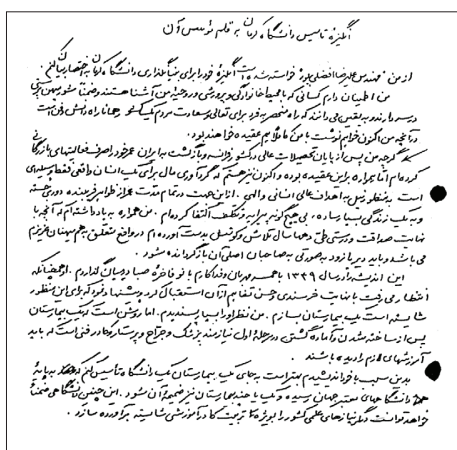 انگیزه تاسیس دانشگاه کرمان به قلم مؤسس آن
از من "مهندس علیرضا افضلی پور" خواسته شده است انگیزه خود را برای بنیانگذاری دانشگاه کرمان به اختصار بیان کنم.
من اطمینان دارم کسانی که با محیط خانوادگی و پرورشی و روحیه من آشنا هستند و ضمناً
در سر دارند و به یقین می دانند که راه منحصر به فرد برای تعالی و سعادت مردم یک کشور همانا راه دانش و فن است
در آنچه من اکنون خواهم نوشت با من کاملاً هم عقیده خواهند بود.
گرچه من پس از پایان تحصیلات عالی در کشور فرانسه و بازگشت به ایران عمر خود را صرف فعالیتهای بازرگانی
کرده ام اما همواره بر این عقیده بوده و اکنون نیز هستم که گردآوری مال برای یک انسان واقعی فقط وسیله ای
است به منظور نیل به اهداف عالی انسانی و الهی. از این جهت در تمام مدت عمر از ظواهر فریبنده دوری جسته
و به یک زندگی بسیار ساده، بی هیچگونه پیرایه و تکلف اکتفا کرده ام. من همواره به یاد داشته ام که آنچه با
نهایت صداقت و درستی طی دهها سال تلاش و کوشش بدست آورده ام در واقع متعلق به هم میهنان عزیزم
می باشد و باید دیر یا زود به صورتی به صاحبان اصلی آن بازگردانده شود.
این اندیشه را در سال ۱۳۴۹ با همسر مهربان و فداکارم بانو فاخره صبا در میان گذاردم. او همچنانکه
انتظار می رفت با نهایت خرسندی و حسن تفاهم از آن استقبال کرد و پیشنهاد نمود که برای این منظور
شایسته است یک بیمارستان بسازیم. من نظر او را بسیار پسندیدم. اما روشن است که یک بیمارستان
پس از ساخته شدن و آماده گشتن در مرحله اول نیازمند پزشک و جراح و پرستار و کادر فنی است که باید
آموزشهای لازم را دیده باشند.
بدین سبب با خود اندیشیدم بهتر است به جای یک بیمارستان یک دانشگاه تأسیس کنم که به پایه
دانشگاههای معتبر جهان رسیده و یک یا چند بیمارستان نیز ضمیمه آن شود. این چنین دانشگاهی ضمناً
خواهد توانست دیگر نیازهای علمی کشور را بویژه با تربیت کادر آموزشی شایسته برآورده سازد.